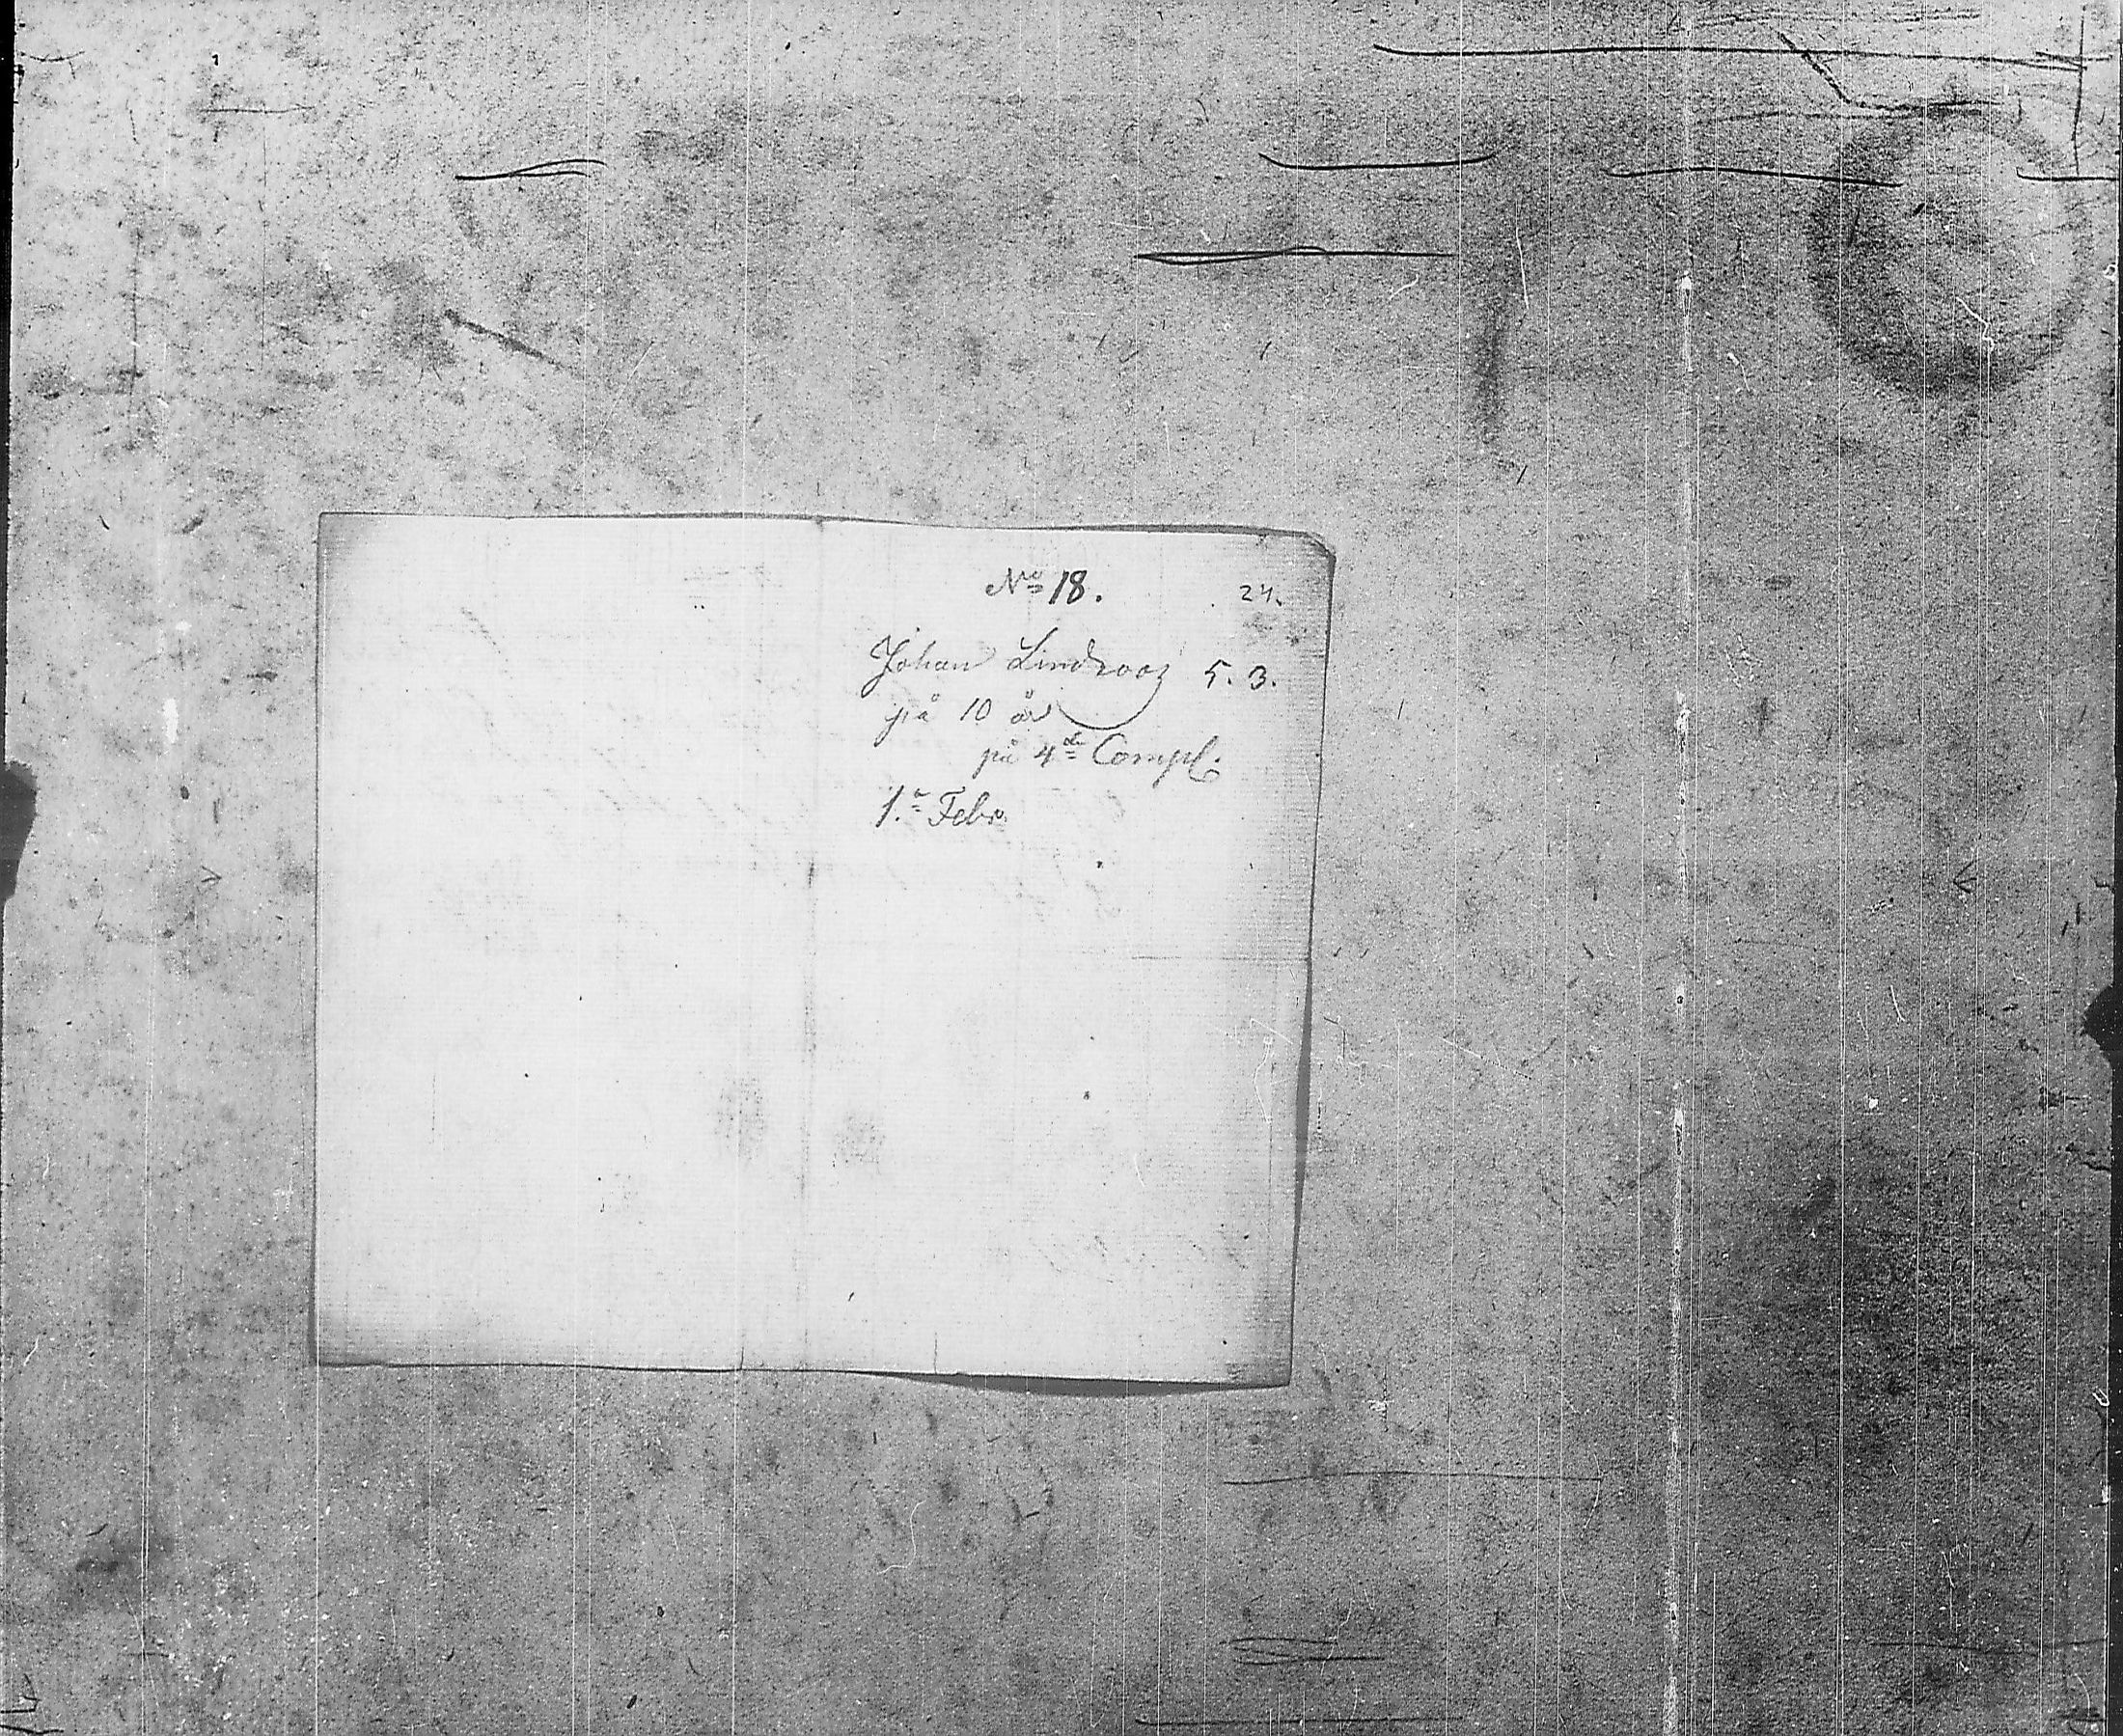 No 18. 24.
Johan Lindroos 5. 3.
på 10 år
på 4de Compl.
1.a Febr.